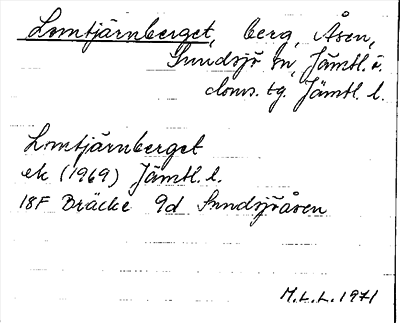 Lomtjärnberget, berg, Åsen,
Sundsjö sn, Jämtl. ö.
doms. tg. Jämtl. l.
Lomtjärnberget
ek (1969) Jämtl. l.
18F Bräcke 9d Sundsjöåsen
M.L.L. 1971